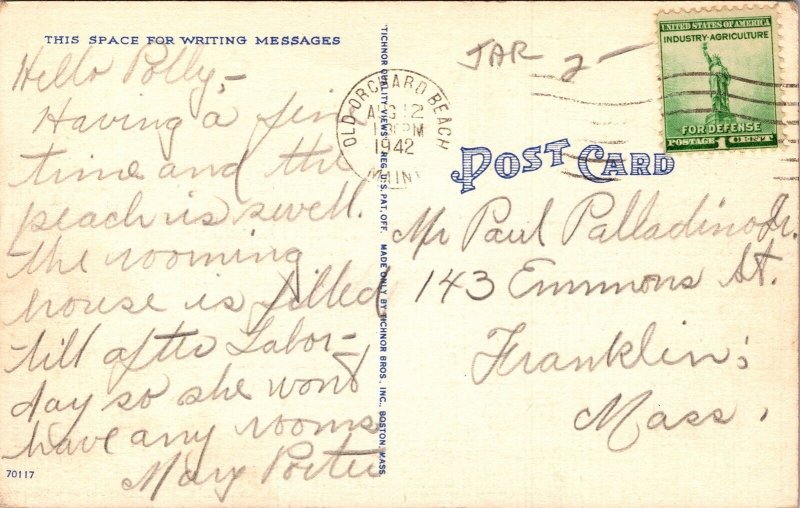 THIS SPACE FOR WRITING MESSAGES
Hello Polly,-
Having a fine
time and the
beach is swell.
the rooming
house is filled
till after Labor-
day so she wont
have any rooms
Mary Porter
70117
"TICHNOR QUALITY VIEWS" REG. U. S. PAT. OFF. MADE ONLY BY TICHNOR BROS., INC., BOSTON, MASS.
JAR 2-
OLD ORCHARD BEACH
AUG 12
PM
1942
MAINE
UNITED STATES OF AMERICA
INDUSTRY-AGRICULTURE
FOR DEFENSE
POSTAGE 1 CENT
POST CARD
Mr Paul Palladino Jr.
143 Emmons St.
Franklin;
Mass.